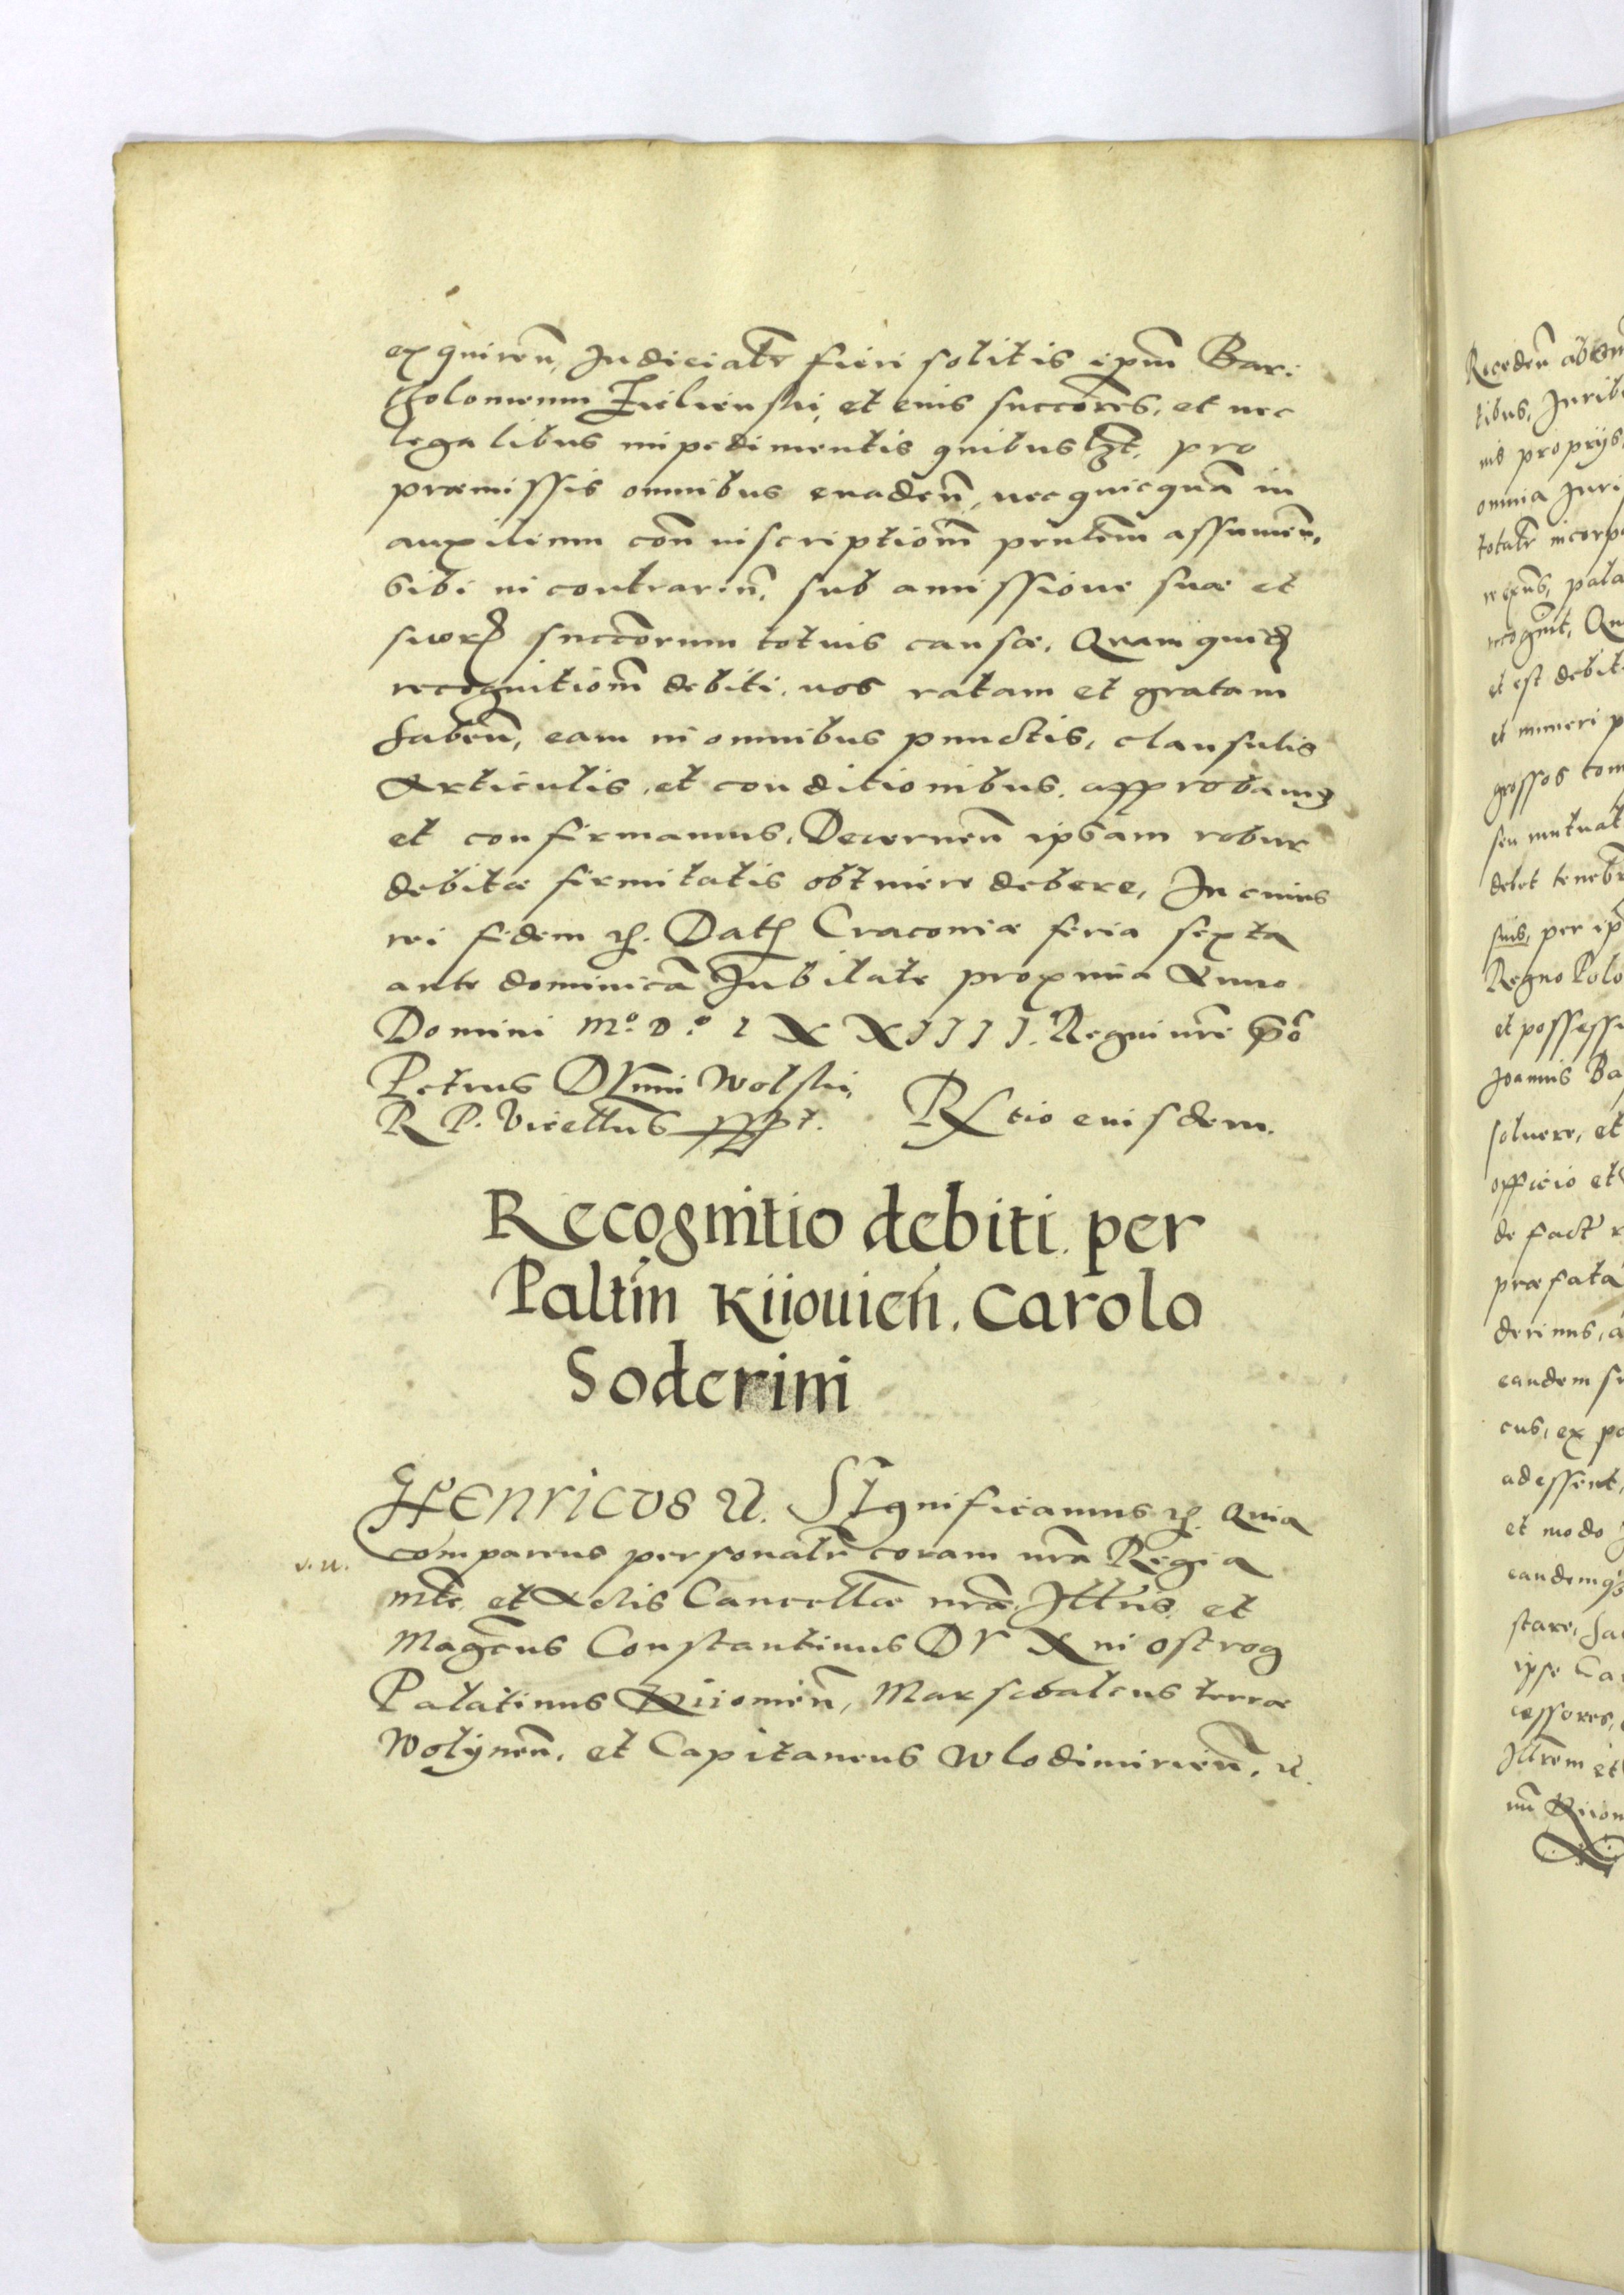 exquiren̄, Judicialr̄ fieri solitis ipm̄ Bar:
tholomeum Zielienski, et eius succōres, et nec
legalibus impedimentis quibuslꝫt, pro
præmissis omnibus euaden̄, nec quicquā in
auxilium con̄ inscriptiōm pn̄tem assumen̄,
sibi in contrariū, sub amissione suæ et
suorꝝ succōrum totius causæ. Quam quidē
recognitiōm debiti, nos ratam et gratam
haben̄, eam in omnibus punctis, clausulis
Articulis, et conditionibus, approbamꝯ
et confirmamus, Decernen̄ ipsam robur
debitæ firmitatis obtinere debere, In cuius
rei fidem ꝛc. Datꝭ Cracoviæ feria sexta
ante dominicā Jubilate proxima Anno
Domini Mº. D.º lXXIIII. Regni nr̄i Pº
Petrus D̄unin Wolski,
R. P. Vicecllr̄us sspt. Rltio eiusdem.
Recognitio debiti per
Paltīn Kiiouien̄. Carolo
Soderini
HENRICVS ꝛc. SIgnificamus ꝛc. Quia
comparens personalr̄ coram nr̄a Regia
v. n.
mt̄e, et Actis Cancellæ nr̄æ, Illr̄is, et
Magcus Constantinus Dux in Ostrog
Palatinus Kiiouien̄, Marschalcus terræ
Wolÿnen̄, et Capitaneus Wlodimirien̄, ꝛc.
Receden̄ ab om
tibus, Jurib
nis proprÿs,
omnia Juri
totalr̄ incorpo
rexn̄s, pala
recognit, Qu
et est debit
et numeri p
grossos com
seu mutuat
debet teneb
suis, per ip
Regno Polo
et possessi
Joannis Ba
soluere, et
officio et
de facto r
præfata
derimus, a
eandem su
cus, ex po
adessent,
et modo J
eandemqꝫ
stare, fa
ipse Ca
cessores,
Illr̄em et
nū Kiiou